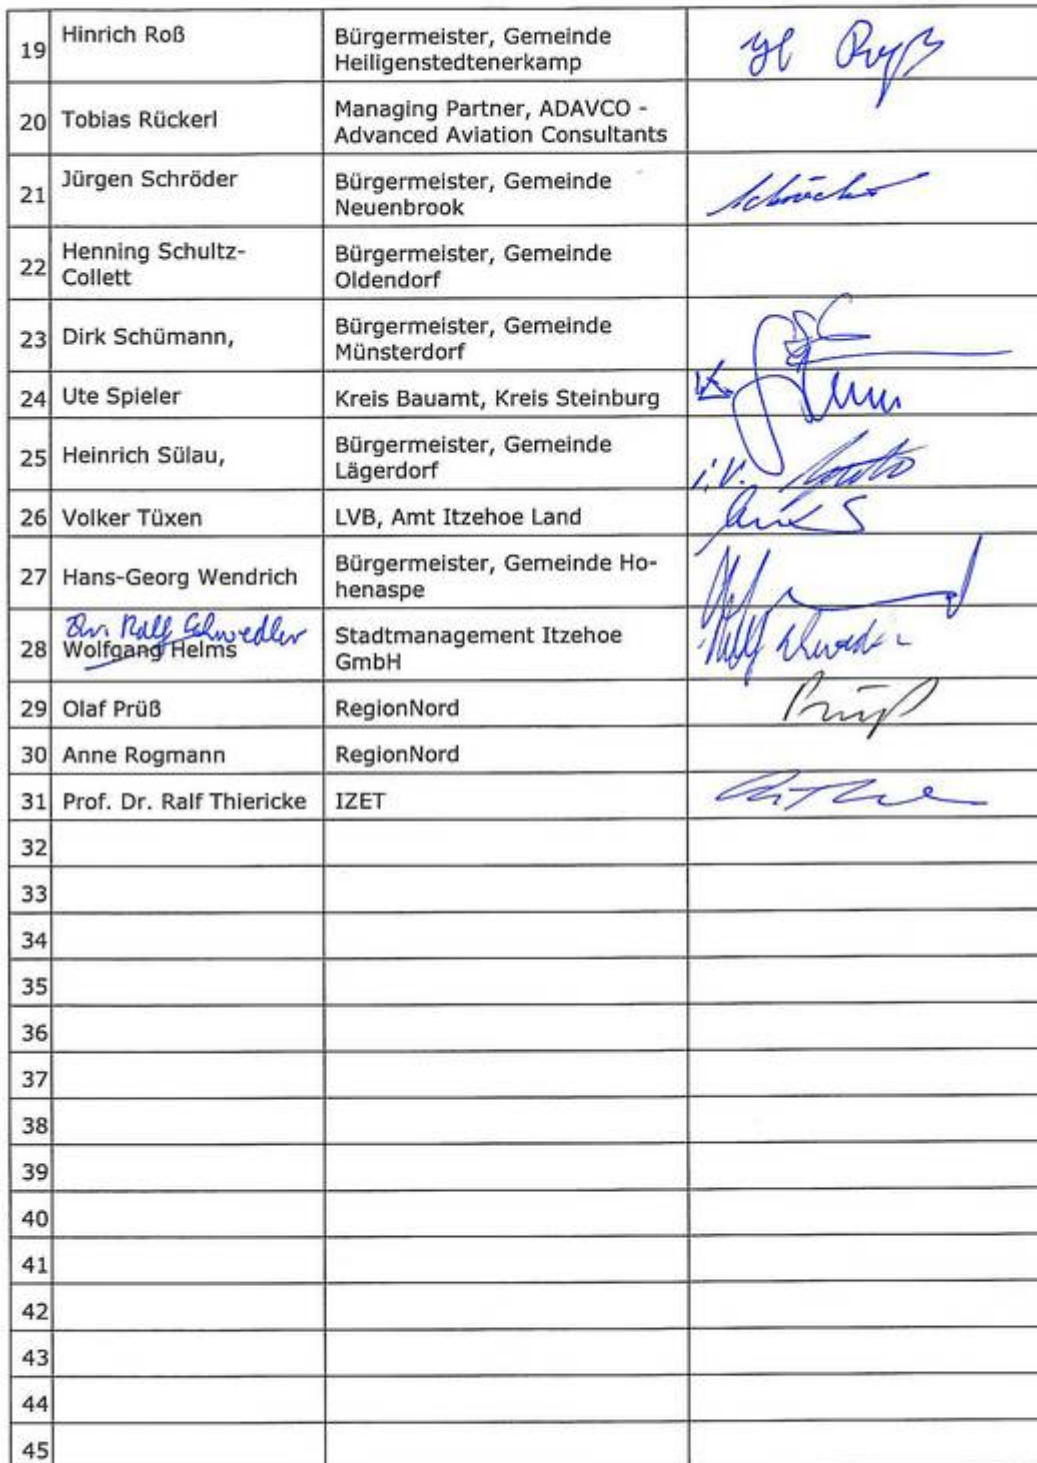 19 Hinrich Roß Bürgermeister, Gemeinde
Heiligenstedtenerkamp
20 Tobias Rückerl Managing Partner, ADAVCO -
Advanced Aviation Consultants
21 Jürgen Schröder Bürgermeister, Gemeinde
Neuenbrook
22 Henning Schultz- Bürgermeister, Gemeinde
Collett Oldendorf
23 Dirk Schümann, Bürgermeister, Gemeinde
Münsterdorf
24 Ute Spieler Kreis Bauamt, Kreis Steinburg
25 Heinrich Sülau, Bürgermeister, Gemeinde
Lägerdorf i.V.
26 Volker Tüxen LVB, Amt Itzehoe Land
27 Hans-Georg Wendrich Bürgermeister, Gemeinde Ho-
henaspe
Ralf Schwedler
28 Wolfgang Helms Stadtmanagement Itzehoe
GmbH
29 Olaf Prüß RegionNord Prüß
30 Anne Rogmann RegionNord
31 Prof. Dr. Ralf Thiericke IZET
32
33
34
35
36
37
38
39
40
41
42
43
44
45